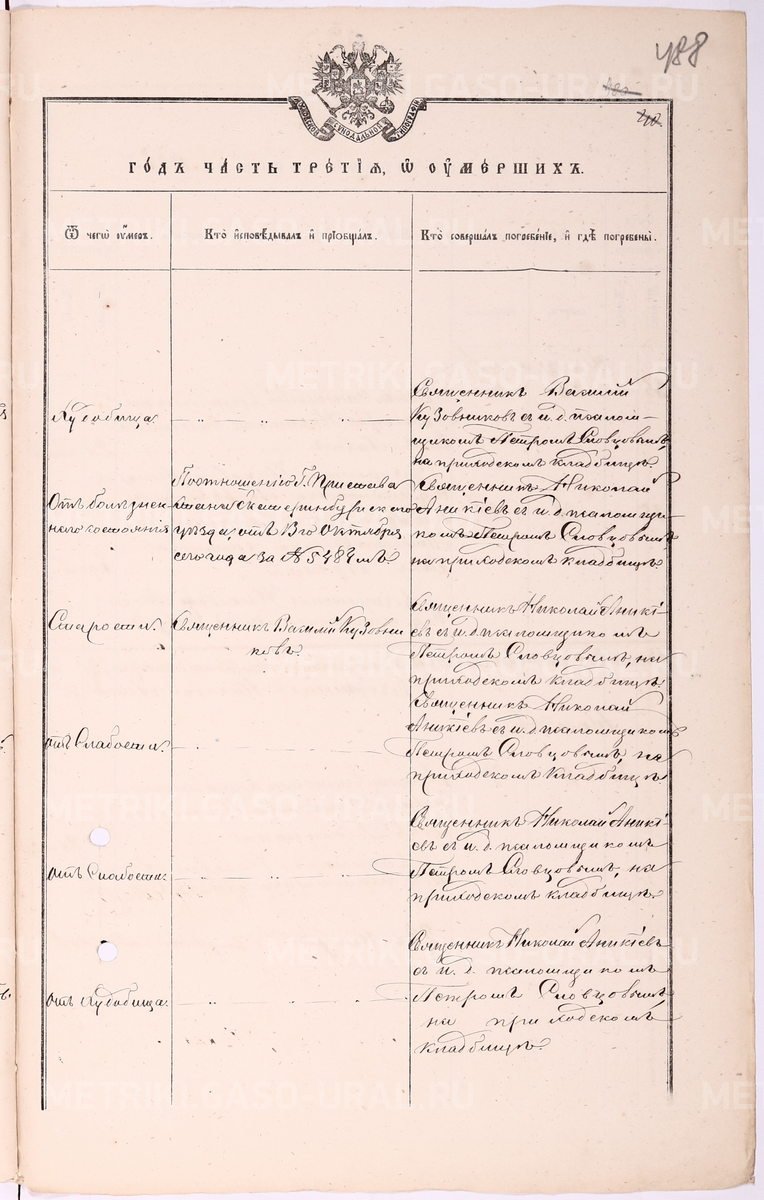 488
METRIKI.GASO-URAL.RU
СѶНОДАЛЬНОЙ
ГО́ДЪ ЧА́СТЬ ТРЕ́ТІѦ, Ѡ ОУМЕ́РШИХЪ.
Ѿ чегѡ оу́меръ.
Кто̀ и҆сповѣ́дывалъ и҆ прїѡбща́лъ.
Кто̀ соверша́лъ погребе́нїе, и҆ гдѣ̀ погребены̀.
Худобища
Священникъ Василій
Кузовниковъ съ и. д. псалом-
щикомъ Петромъ Словцовымъ,
на приходскомъ кладбищѣ.
Отъ болѣznen-
наго состоянія
По отношенію Г. Пристава
стана Екатеринбургскаго
уѣзда, отъ 13го Октября
сего года за № 5484мъ.
Священникъ Николай
Аникіевъ съ и. д. псаломщи-
комъ Петромъ Словцовымъ,
на приходскомъ кладбищѣ.
Старости.
Священникъ Василій Кузовни
ковъ.
Священникъ Николай Аникі-
евъ съ и. д. псаломщикомъ
Петромъ Словцовымъ, на
приходскомъ кладбищѣ.
отъ Слабости.
Священникъ Николай
Аникіевъ съ и. д. псаломщикомъ
Петромъ Словцовымъ, на
приходскомъ кладбищѣ.
отъ Слабости.
Священникъ Николай Аникі-
евъ съ и. д. псаломщикомъ
Петромъ Словцовымъ, на
приходскомъ кладбищѣ.
отъ Худобища.
Священникъ Николай Аникіевъ
съ и. д. псаломщикомъ
Петромъ Словцовымъ
на приходскомъ
кладбищѣ.